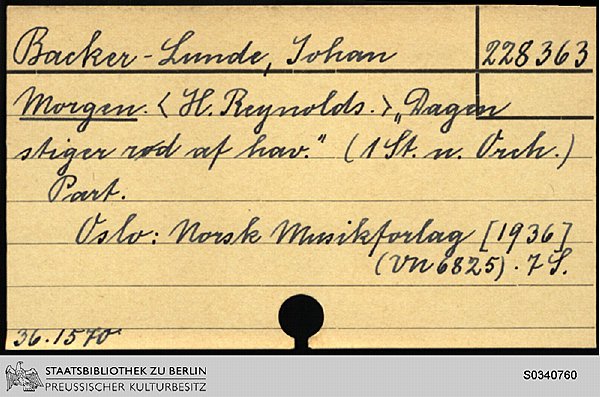 Backer-Lunde, Johan 228363
Morgen. < H. Reynolds. > „Dagen
stiger rød af hav." (1 St. u. Orch.)
Part.
Oslo: Norsk Musikforlag [1936]
(VN 6825). 7 S.
36.1570
STAATSBIBLIOTHEK ZU BERLIN
PREUSSISCHER KULTURBESITZ
S0340760